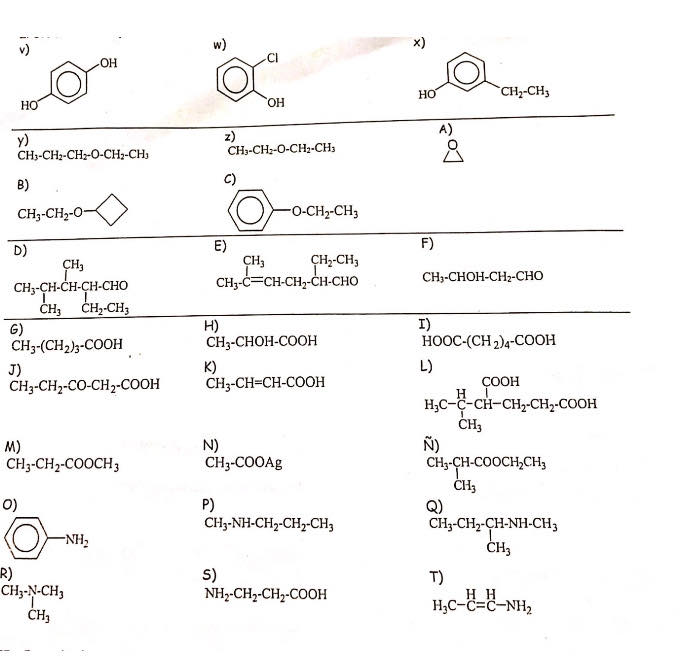 v)
w)
x)
OH
HO
Cl
OH
HO
CH₂-CH₃
y)
z)
A)
CH₃-CH₂-CH₂-O-CH₂-CH₃
CH₃-CH₂-O-CH₂-CH₃
O
B)
C)
CH₃-CH₂-O
O-CH₂-CH₃
D)
E)
F)
CH₃
CH₃-CH-CH-CH-CHO
CH₃ CH₂-CH₃
CH₃ CH₂-CH₃
CH₃-C=CH-CH₂-CH-CHO
CH₃-CHOH-CH₂-CHO
G)
H)
I)
CH₃-(CH₂)₃-COOH
CH₃-CHOH-COOH
HOOC-(CH₂)₄-COOH
J)
K)
L)
CH₃-CH₂-CO-CH₂-COOH
CH₃-CH=CH-COOH
COOH
H
H₃C-C-CH-CH₂-CH₂-COOH
CH₃
M)
N)
Ñ)
CH₃-CH₂-COOCH₃
CH₃-COOAg
CH₃-CH-COOCH₂CH₃
CH₃
O)
P)
Q)
NH₂
CH₃-NH-CH₂-CH₂-CH₃
CH₃-CH₂-CH-NH-CH₃
CH₃
R)
S)
T)
CH₃-N-CH₃
CH₃
NH₂-CH₂-CH₂-COOH
H H
H₃C-C=C-NH₂